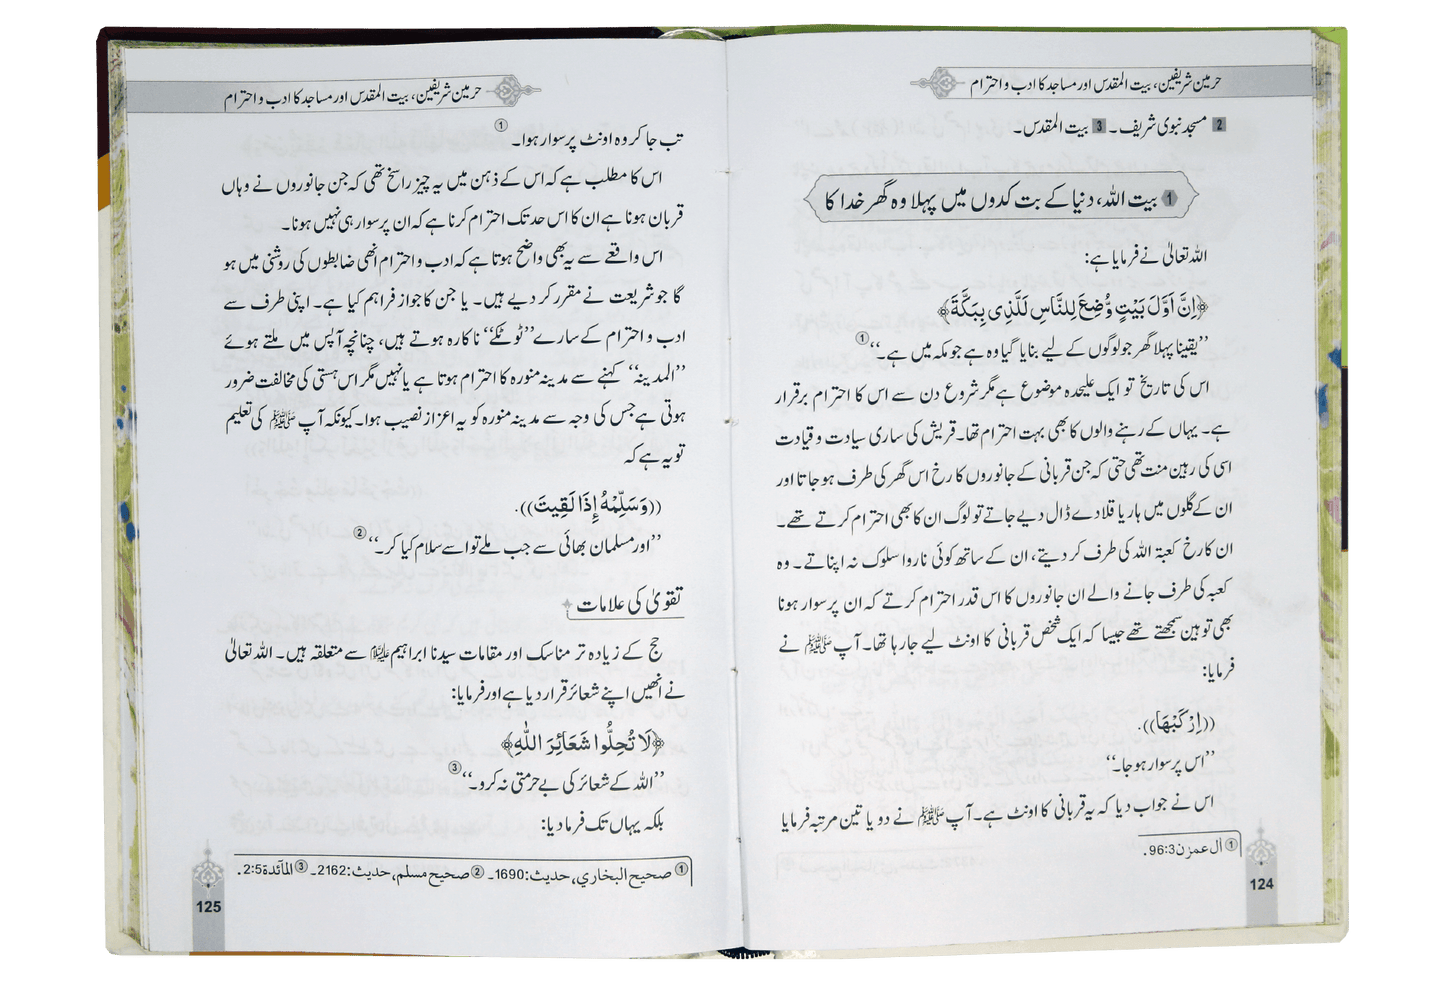 حرمین شریفین، بیت المقدس اور مساجد کا ادب و احترام
2 مسجد نبوی شریف۔ 3 بیت المقدس۔
1 بیت اللہ، دنیا کے بت کدوں میں پہلا وہ گھر خدا کا
اللہ تعالیٰ نے فرمایا ہے:
﴿اِنَّ اَوَّلَ بَيْتٍ وُّضِعَ لِلنَّاسِ لَلَّذِى بِبَكَّةَ﴾
’’یقینا پہلا گھر جو لوگوں کے لیے بنایا گیا وہ ہے جو مکہ میں ہے۔‘‘①
اس کی تاریخ تو ایک علیحدہ موضوع ہے مگر شروع دن سے اس کا احترام برقرار
ہے۔ یہاں کے رہنے والوں کا بھی بہت احترام تھا۔ قریش کی ساری سیادت و قیادت
اسی کی رہین منت تھی حتی کہ جن قربانی کے جانوروں کا رخ اس گھر کی طرف ہو جاتا اور
ان کے گلوں میں ہار یا قلادے ڈال دیے جاتے تو لوگ ان کا بھی احترام کرتے تھے۔
ان کا رخ کعبۃ اللہ کی طرف کر دیتے، ان کے ساتھ کوئی ناروا سلوک نہ اپناتے۔ وہ
کعبہ کی طرف جانے والے ان جانوروں کا اس قدر احترام کرتے کہ ان پر سوار ہونا
بھی توہین سمجھتے تھے جیسا کہ ایک شخص قربانی کا اونٹ لیے جا رہا تھا۔ آپ ﷺ نے
فرمایا:
((اِرْكَبْهَا)).
’’اس پر سوار ہو جا۔‘‘
اس نے جواب دیا کہ یہ قربانی کا اونٹ ہے۔ آپ ﷺ نے دو یا تین مرتبہ فرمایا
① اٰل عمرٰن 96:3.
124
حرمین شریفین، بیت المقدس اور مساجد کا ادب و احترام
تب جا کر وہ اونٹ پر سوار ہوا۔①
اس کا مطلب ہے کہ اس کے ذہن میں یہ چیز راسخ تھی کہ جن جانوروں نے وہاں
قربان ہونا ہے ان کا اس حد تک احترام کرنا ہے کہ ان پر سوار ہی نہیں ہونا۔
اس واقعے سے یہ بھی واضح ہوتا ہے کہ ادب و احترام انھی ضابطوں کی روشنی میں ہو
گا جو شریعت نے مقرر کر دیے ہیں۔ یا جن کا جواز فراہم کیا ہے۔ اپنی طرف سے
ادب و احترام کے سارے ’’ٹوٹکے‘‘ ناکارہ ہوتے ہیں، چنانچہ آپس میں ملتے ہوئے
’’المدینہ‘‘ کہنے سے مدینہ منورہ کا احترام ہوتا ہے یا نہیں مگر اس ہستی کی مخالفت ضرور
ہوتی ہے جس کی وجہ سے مدینہ منورہ کو یہ اعزاز نصیب ہوا۔ کیونکہ آپ ﷺ کی تعلیم
تو یہ ہے کہ
((وَسَلِّمْهُ إِذَا لَقِيتَ)).
’’اور مسلمان بھائی سے جب ملے تو اسے سلام کیا کر۔‘‘②
تقویٰ کی علامات
حج کے زیادہ تر مناسک اور مقامات سیدنا ابراہیم علیہ السلام سے متعلقہ ہیں۔ اللہ تعالیٰ
نے انھیں اپنے شعائر قرار دیا ہے اور فرمایا:
﴿لَا تُحِلُّوا شَعَائِرَ اللّٰهِ﴾
’’اللہ کے شعائر کی بے حرمتی نہ کرو۔‘‘③
بلکہ یہاں تک فرما دیا:
① صحيح البخاري، حديث:1690۔ ② صحيح مسلم، حديث:2162۔ ③ المآئدة 2:5.
125